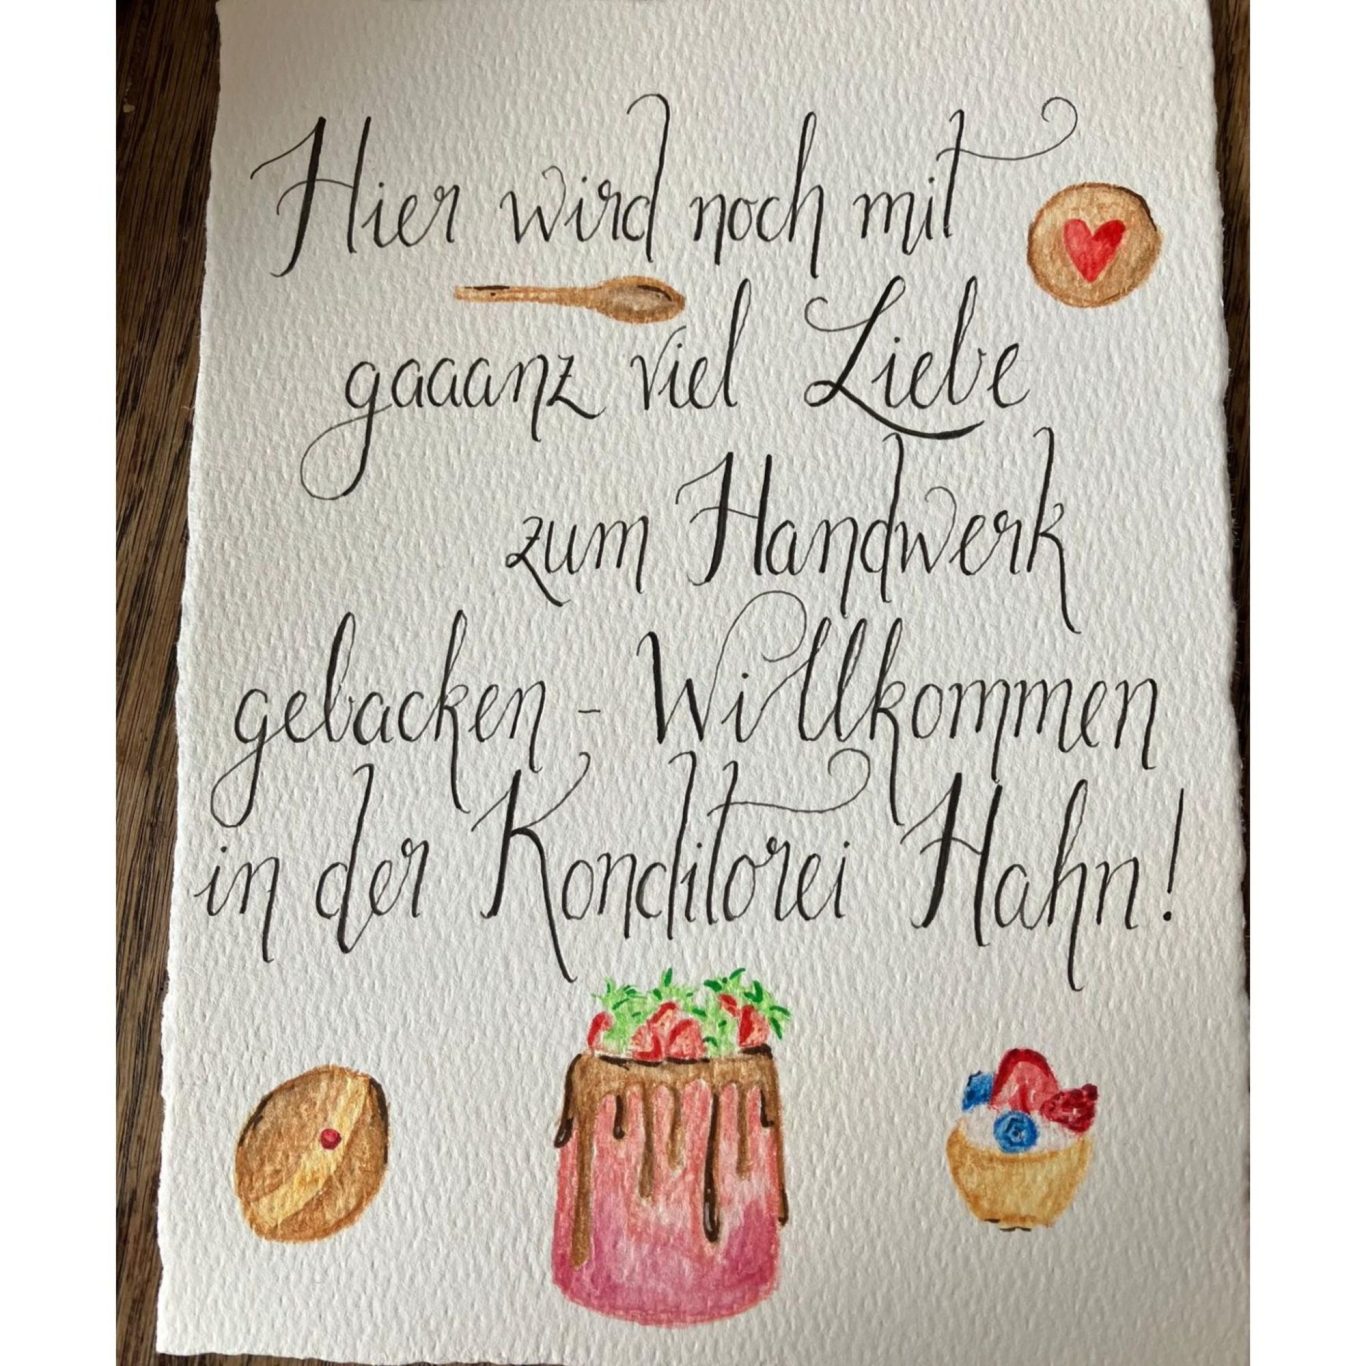 Hier wird noch mit
gaaanz viel Liebe
zum Handwerk
gebacken - Willkommen
in der Konditorei Hahn!